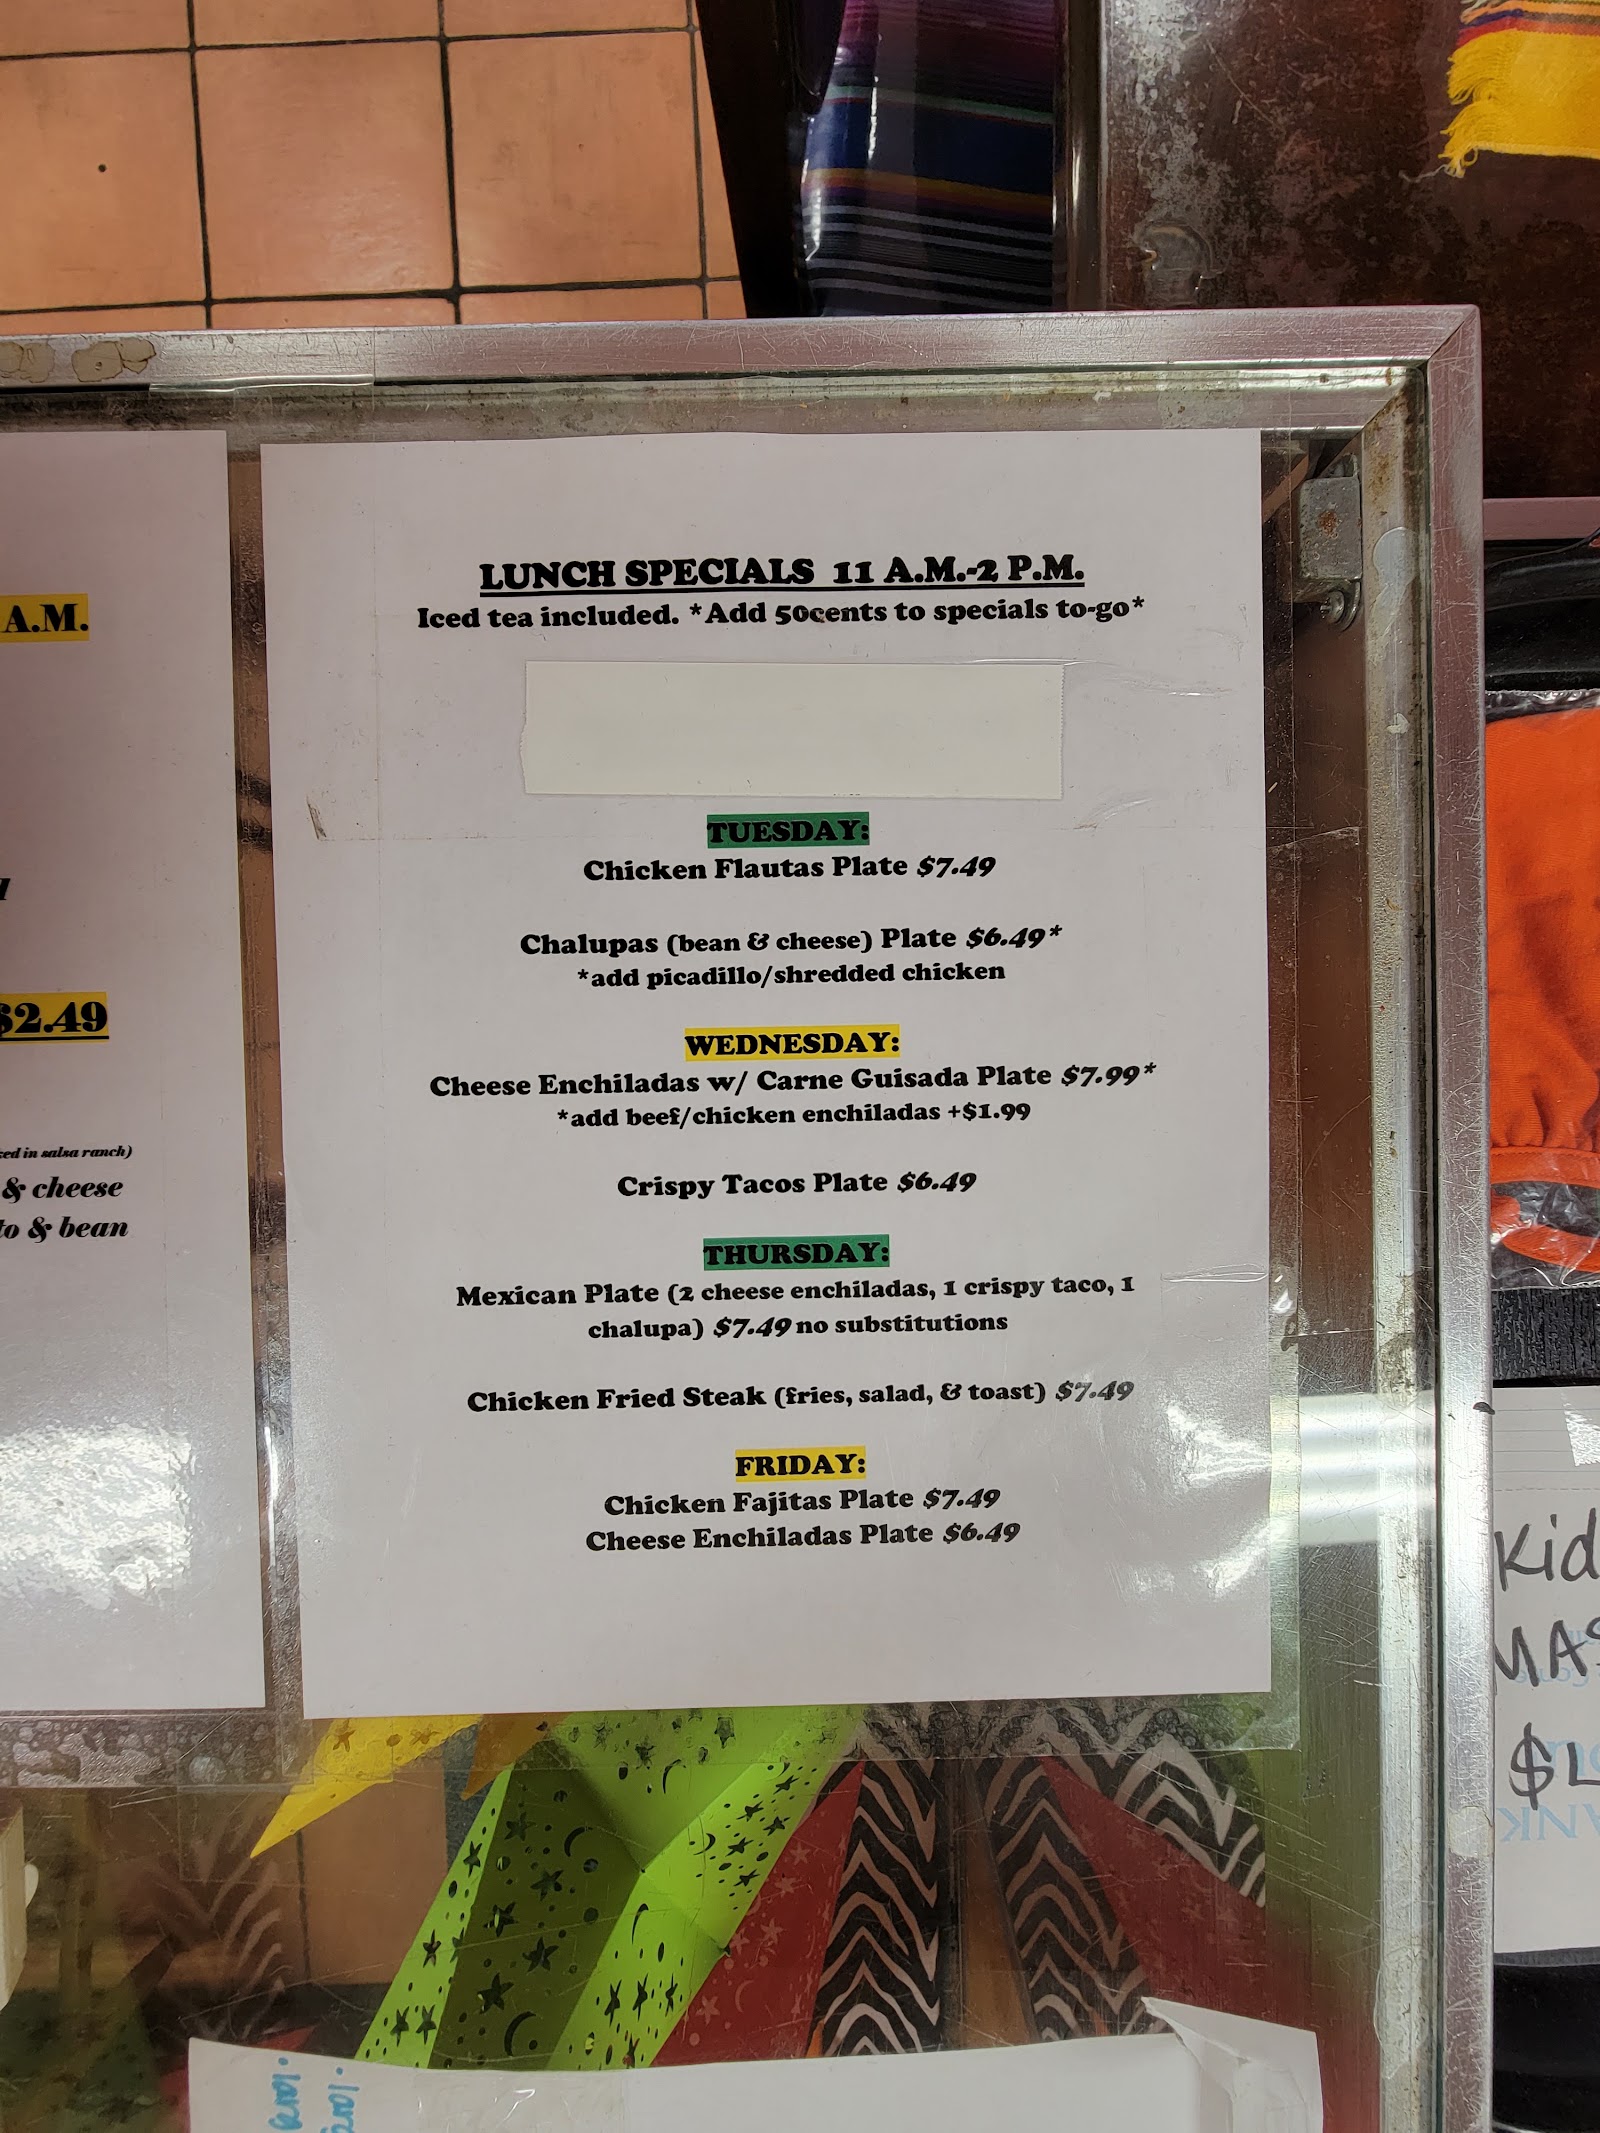 A.M.
$2.49
ked in salsa ranch)
& cheese
to & bean
LUNCH SPECIALS 11 A.M.-2 P.M.
Iced tea included. *Add 50cents to specials to-go*
TUESDAY:
Chicken Flautas Plate $7.49
Chalupas (bean & cheese) Plate $6.49*
*add picadillo/shredded chicken
WEDNESDAY:
Cheese Enchiladas w/ Carne Guisada Plate $7.99*
*add beef/chicken enchiladas +$1.99
Crispy Tacos Plate $6.49
THURSDAY:
Mexican Plate (2 cheese enchiladas, 1 crispy taco, 1
chalupa) $7.49 no substitutions
Chicken Fried Steak (fries, salad, & toast) $7.49
FRIDAY:
Chicken Fajitas Plate $7.49
Cheese Enchiladas Plate $6.49
Kid
MAS